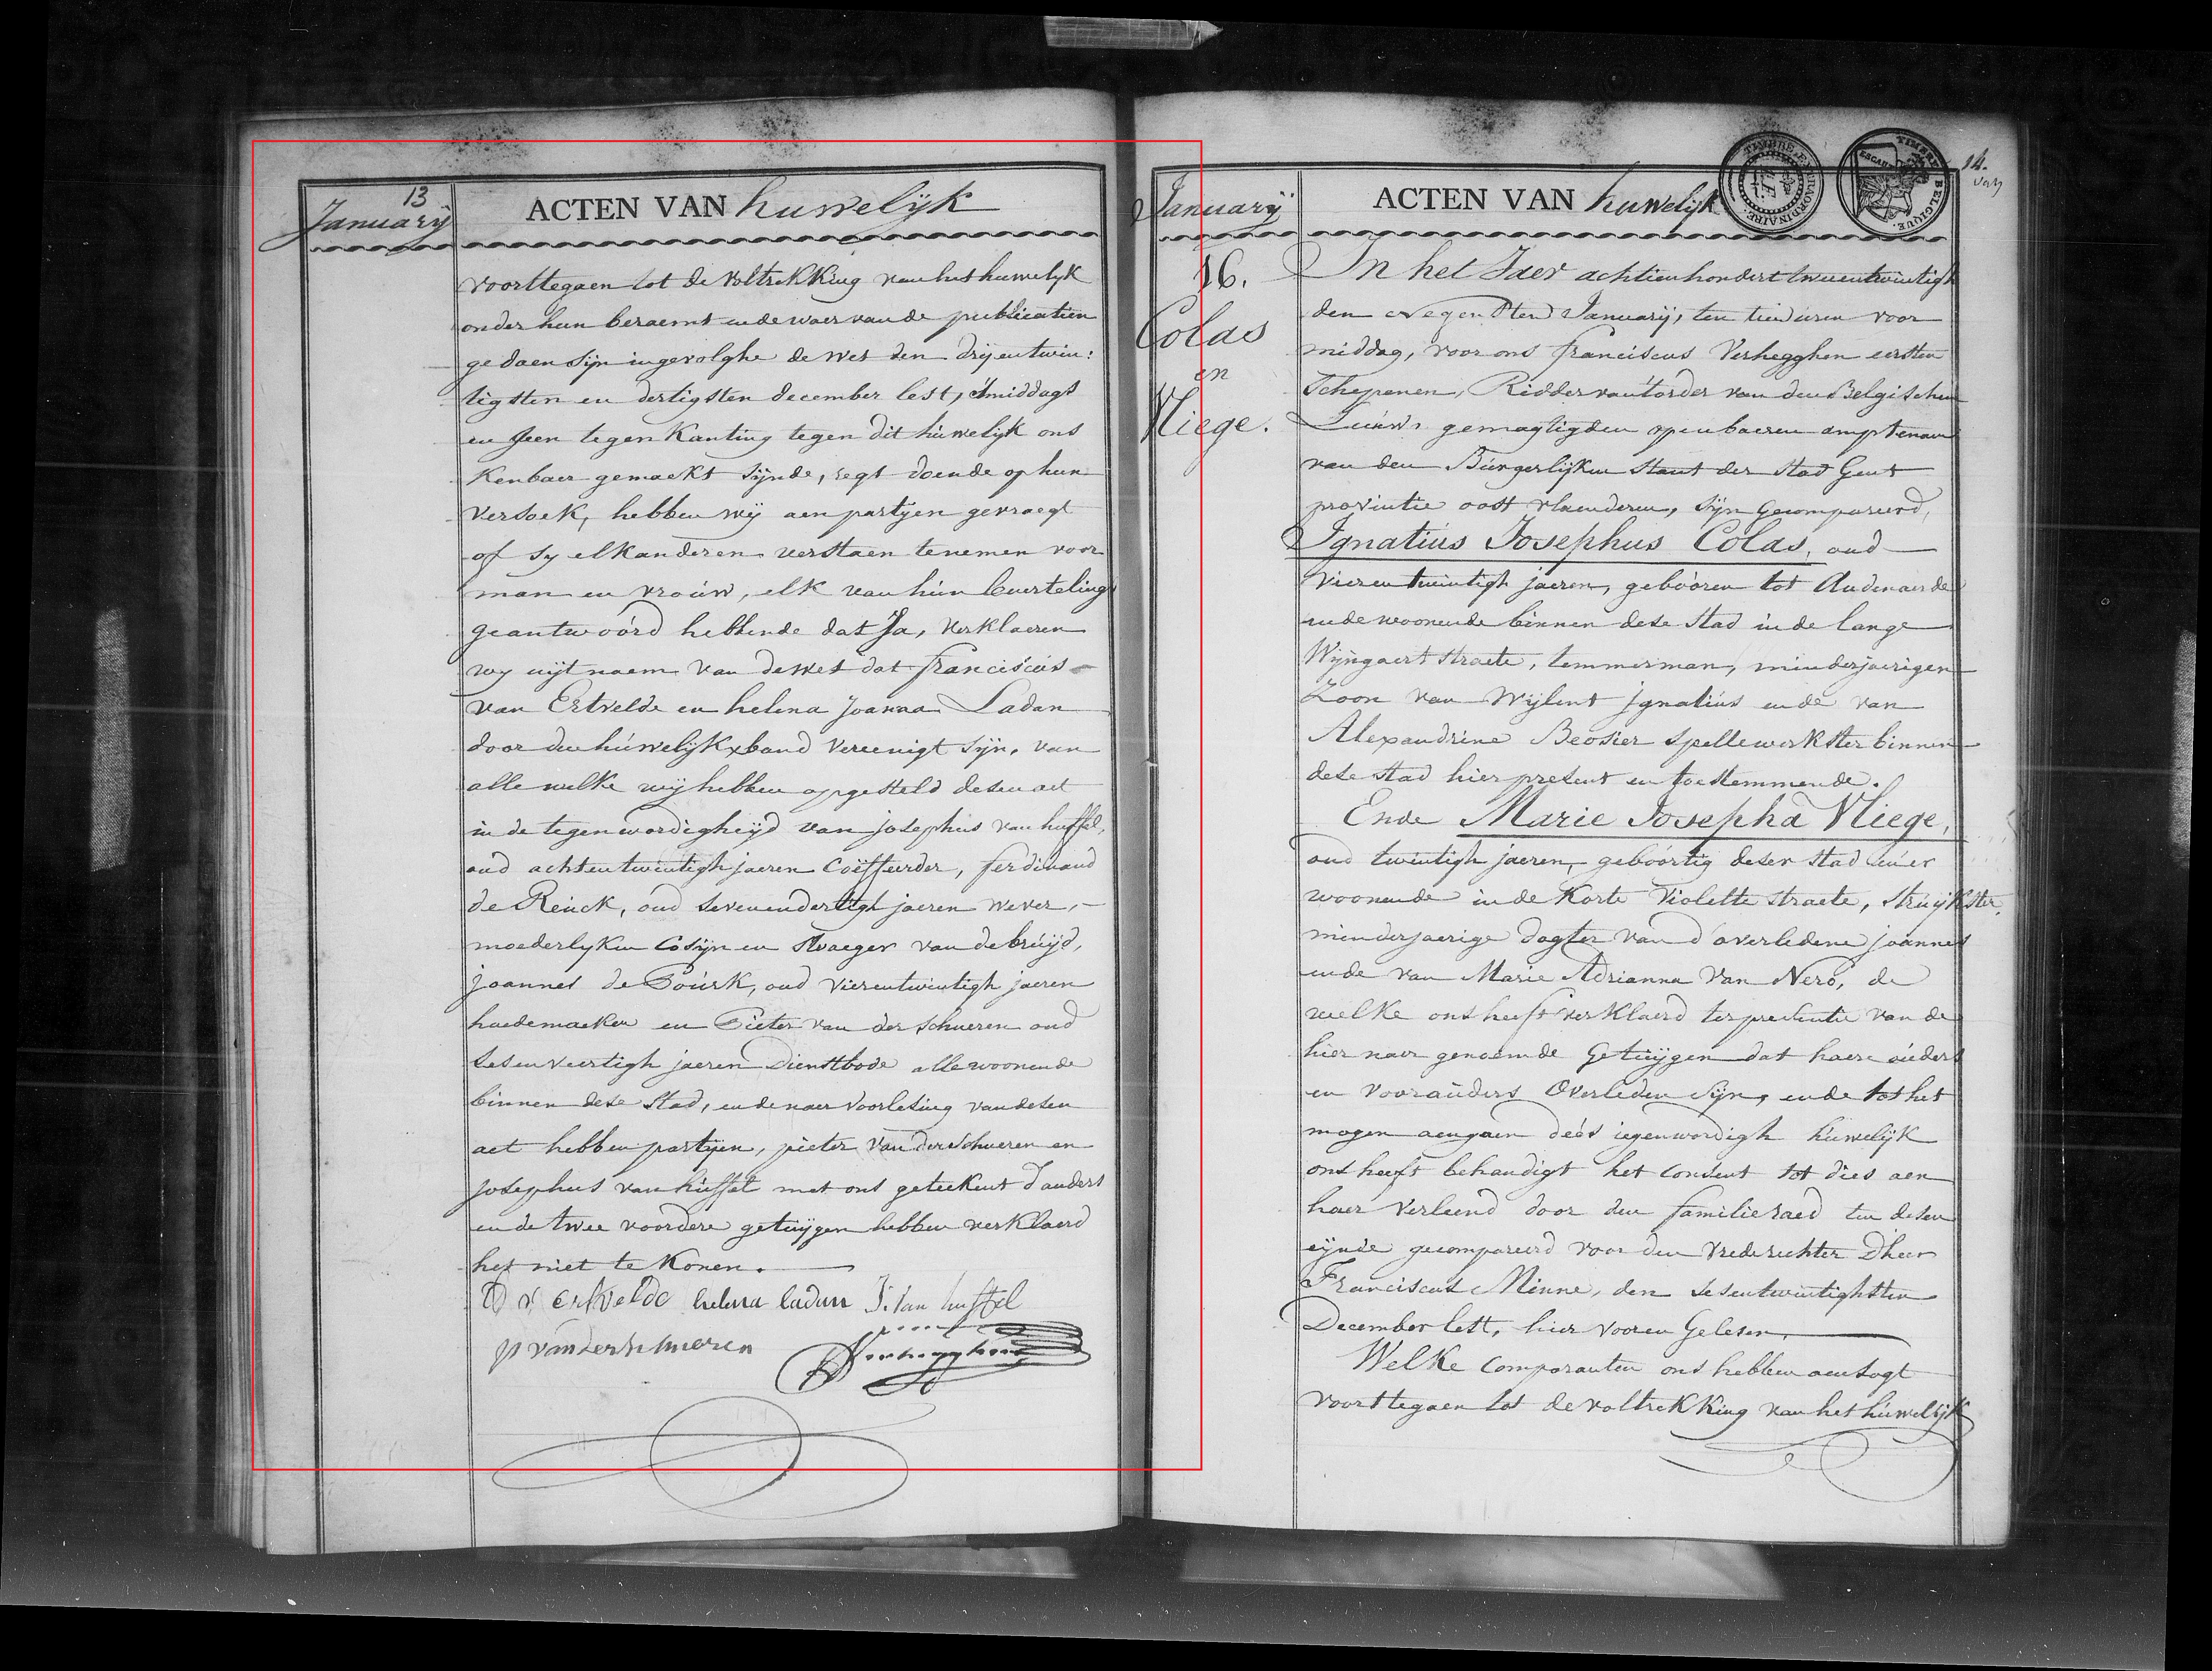 13
January
ACTEN VAN huwelijk
voorttegaen tot de voltrekking van het huwelyk
onder hun beraemt ende waer van de publicatien
gedaen sijn ingevolghe de wet den drijentwin:
tigsten en dertigsten december lest, s'middags
en geen tegenkanting tegen dit huwelijk ons
Kenbaer gemaekt sijnde, regt doende op hun
versoek, hebben wij aen partijen gevraegt
of sy elkanderen verstaen tenemen voor
man en vrouw, elk van hun beurteling
geantwoórd hebbende dat Ja, verklaeren
wy uijt naem van de wet dat franciscus
van Ertvelde en helena joanna Ladan
door den huwelijkxband vereenigt sijn, van
alle welke wij hebben opgesteld desen act
in de tegenwordigheijd van josephus van huffel,
oud achtentwintigh jaeren Coëffeurder, ferdinand
de Reuck, oud sevenendertigh jaeren wever,
moederlyken Cosijn en Swaeger van de bruijd,
joannes de Pourk, oud vierentwintigh jaeren
hoedemaeker en Pieter van der schueren oud
sesenveertigh jaeren Dienstbode alle woonende
binnen dese stad, ende naer voorlesing van desen
act hebben partijen, pieter van der Schueren en
josephus van huffel met ons geteekent d'anders
en de twee voordere getuijgen hebben verklaerd
het niet te konen.
v ertvelde helena ladan J. Van huffel
p vanderschueren
Verhegghen
14.
van
January
ACTEN VAN huwelijk
TIMBRE EXTRAORDINAIRE.
TIMBRE BELGIQUE.
ESCAUT
16.
Colas
en
Vliege.
In het Jaer achtienhondert tweeentwintigh
den Negensten January, ten tien uren voor
middag, voor ons franciscus Verhegghen eersten
Schepenen, Ridder van't order van den Belgischen
Leeuw, gemagtigden openbaeren amptenaer
van den Burgerlijken staet der stad Gent
provintie oost vlaenderen, sijn Gecompareerd,
Ignatius Josephus Colas, oud
vierentwintigh jaeren, gebooren tot Audenaerde
ende woonende binnen dese stad in de lange
Wijngaert straete, temmerman, minderjaerigen
Zoon van Wijlent jgnatius ende van
Alexandrine Beosier spellewerkster binnen
dese stad hier present en toestemmende.
Ende Marie Josepha Vliege,
oud twintigh jaeren, geboórtig deser stad en er
woonende in de Korte Violette straete, struijkster,
minderjaerige dogter van d'overledene joannes
ende van Marie Adrianna Van Nero, de
welke ons heeft verklaerd ter presentie van de
hier naer genoemde Getuijgen dat haere ouders
en voorouders Overleden sijn, ende tot het
mogen aengaen dees iegenwordigh huwelijk
ons heeft behandigt het Consent tot dies aen
haer verleend door den familieraed ten desen
eijnde gecompareerd voor den vrederechter Dheer
Franciscus Minne, den sesentwintighsten
December lest, hier vooren Gelesen,
Welke Comparanten ons hebben aensogt
voorttegaen tot de voltrekking van het huwelijk